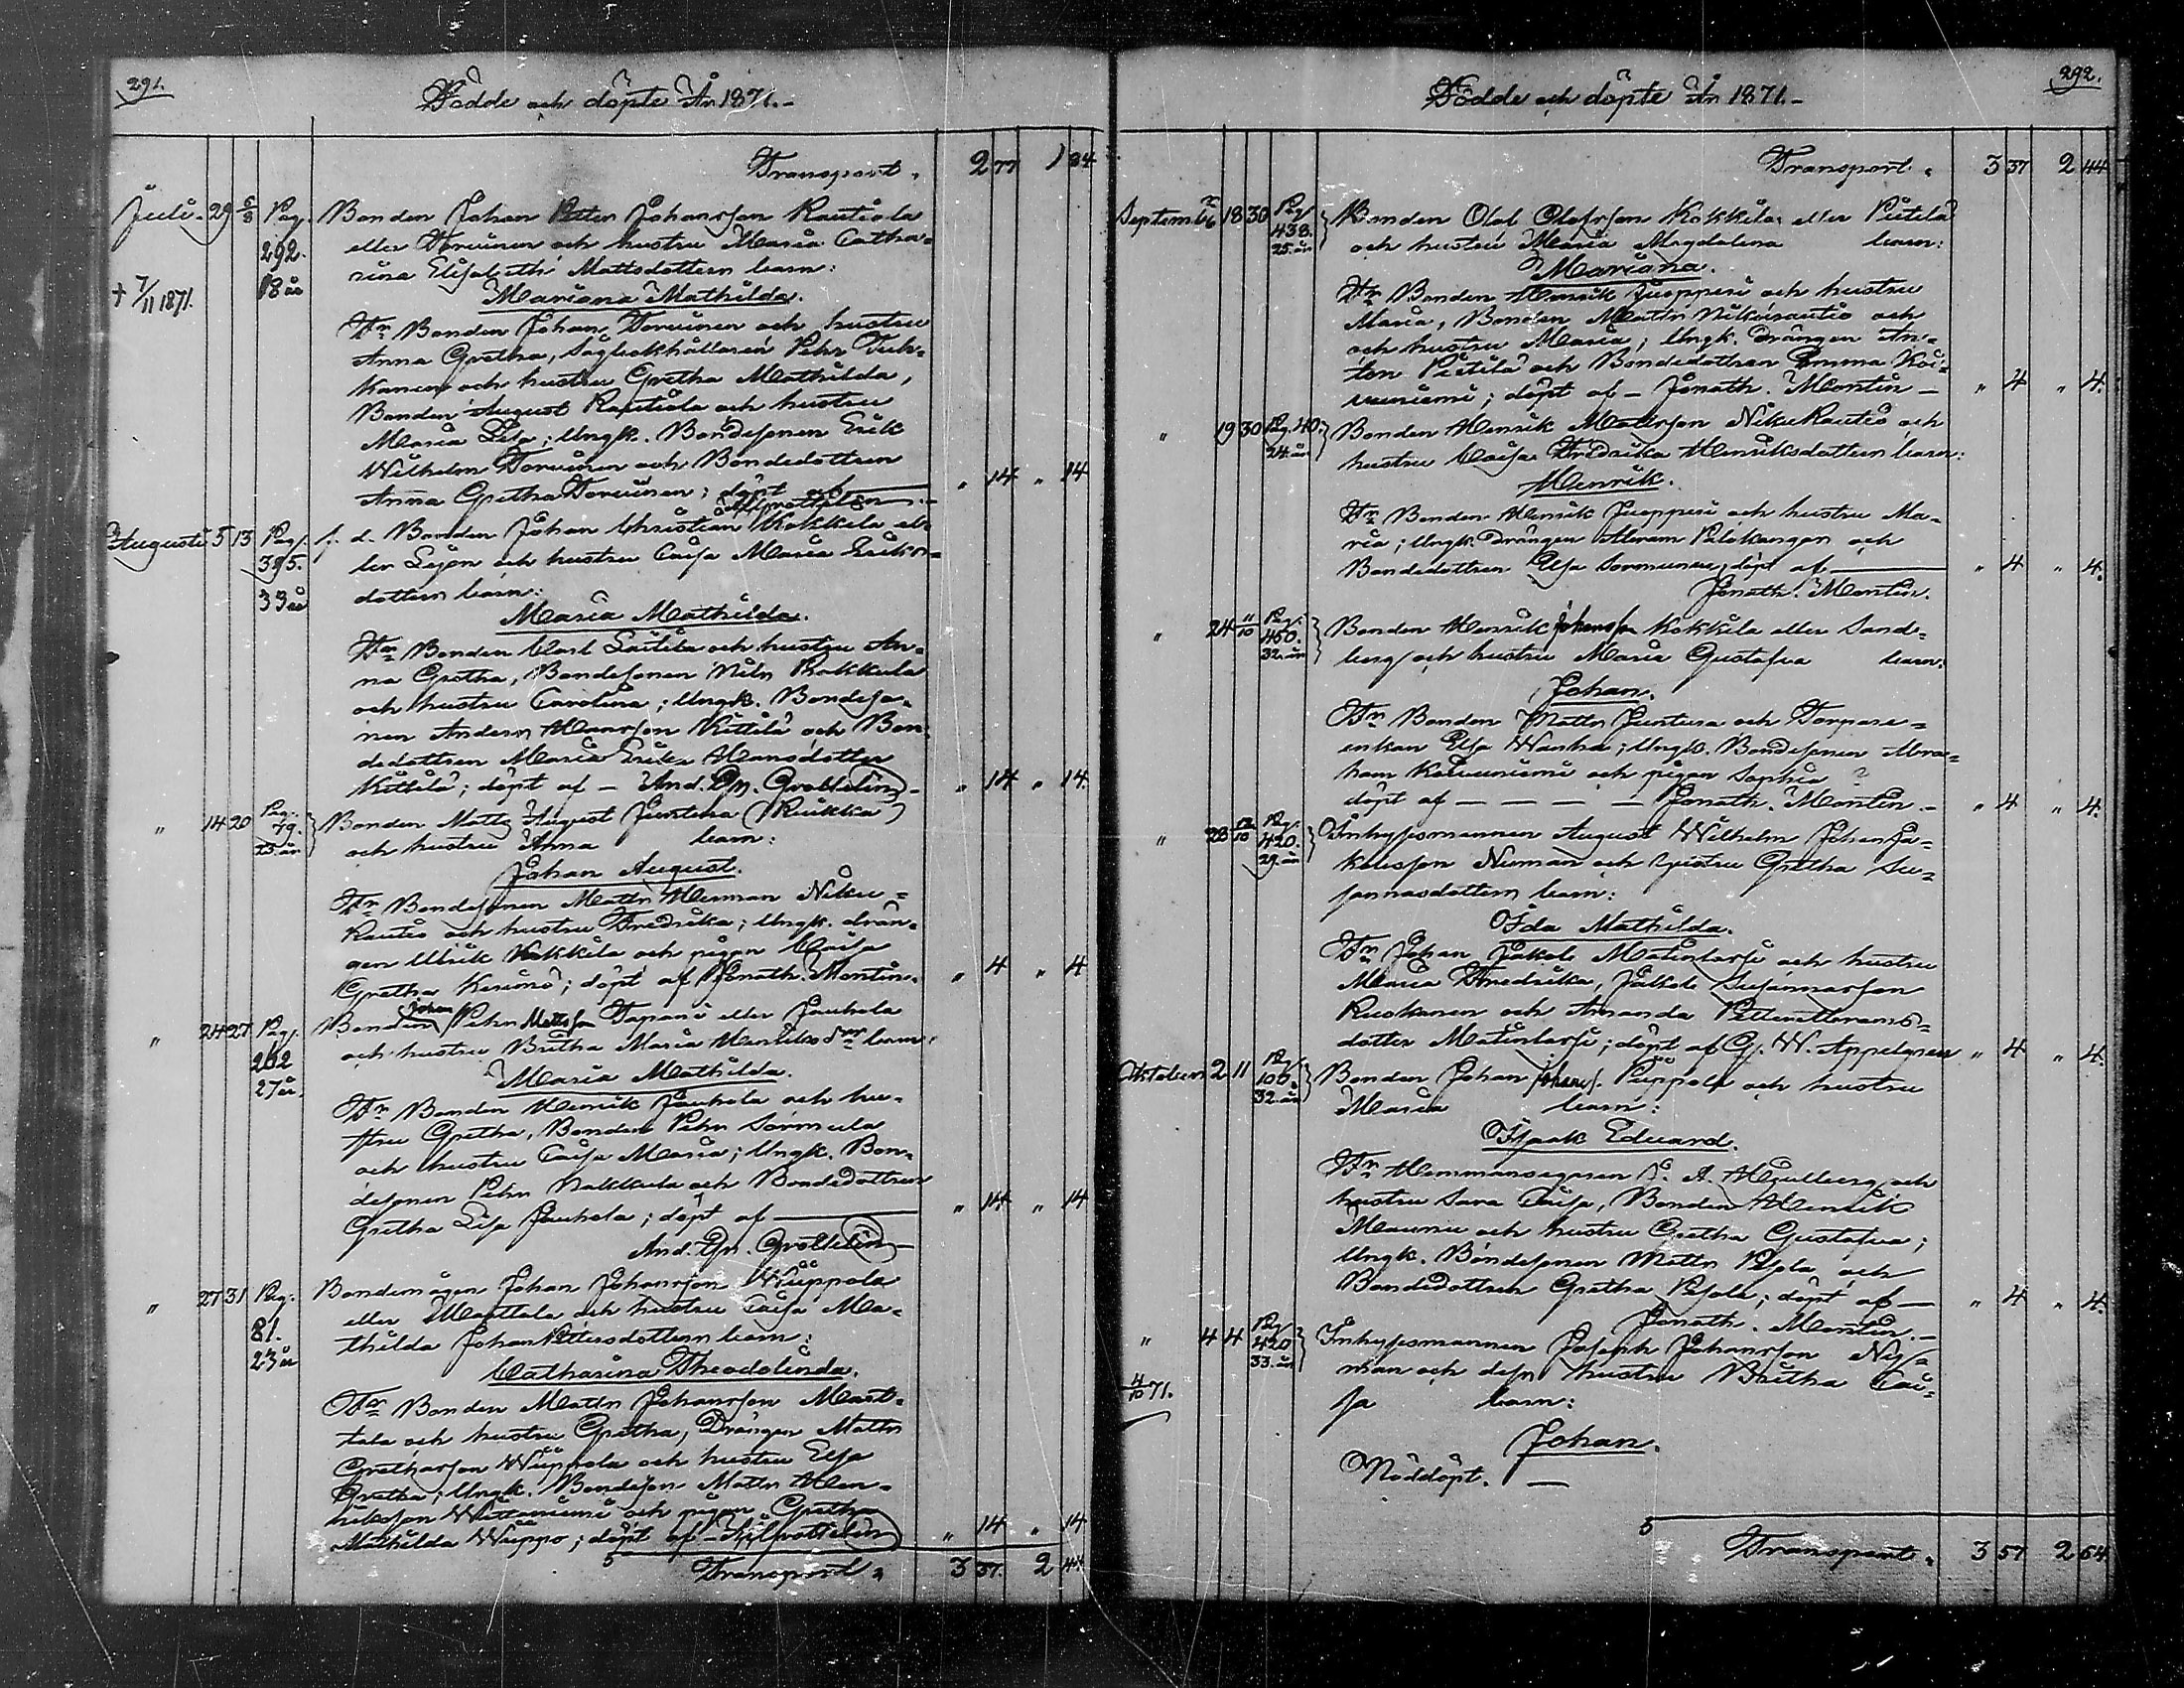 291.
Födde och döpte År 1871.-
Transport. 2 77 1 84
Juli. 29 6/8 Pag. Bonden Johan Petter Johansson Rautiola
292. eller Torvinen och hustru Maria Catha-
18 år rina Elisabeth Mattsdotters barn:
† 7/11 1871. Mariana Mathilda.
Fr. Bonden Johan Torvinen och hustru
Anna Gretha, Sågbokhållaren Pehr Tuk-
kanen och hustru Gretha Mathilda,
Bonden August Rautiola och hustru
Maria Lisa; Ungk. Bondesonen Erik
Wilhelm Torvinen och Bondedottren
Anna Gretha Torvinen; döpt af — " 14 " 14
Augusti 5 13 Pag. f. d. Bonden Johan Christian Kokkila el-
395. ler Lejon och hustru Caisa Maria Eriks-
33 år dotters barn:
Maria Mathilda.
Fr. Bonden Carl Lailila och hustru An-
na Gretha, Bondesonen Nils
och hustru Carolina; Ungk. Bondeso-
nen Anders Hansson Kittilä och Bon-
dedottren Maria Erika Hansdotter
Kittilä; döpt af - And. Joh. " 14 " 14.
" 14 20 Pag. 79. Bonden Matts August Juntura (Ruikka)
23. år och hustru Anna barn:
Johan August.
Fr. Bondesonen Matts Herman Niku-
Rautio och hustru Fredrika; Ungk. drän-
gen Ulrik Kokkila och pigan Caisa
Gretha; döpt af Jonath. Montin. " 4 " 4
" 24 27 Pag. Bonden Johan Pehr Mattsson Tapani eller Jauhola
262 och hustru Britha Maria Henriksdr barn:
27 år. Maria Mathilda.
Fr. Bonden Henrik Jauhola och hu-
stru Gretha, Bonden Pehr Sormula
och hustru Caisa Maria; Ungk. Bon-
desonen Pehr Nakkula och Bondedottren
Gretha Lisa Jauhola; döpt af — " 14 " 14
And. Joh.
" 27 31 Pag. Bondemågen Johan Johansson Wiippola
81. eller Marttala och hustru Caisa Ma-
23 år thilda Johan Pettersdotters barn:
Catharina Theodolinda.
Fr. Bonden Matts Johansson Mart-
tala och hustru Gretha, Drängen Matts
Grethasson Wiippola och hustru Elsa
Gretha; Ungk. Bondeson Matts Hen-
riksson Wittaniemi och pigan Gretha
Mathilda Wiippo; döpt af — " 14 " 14
5 Transport. 3 37. 2 44
292.
Födde och döpte År 1871.-
Transport. 3 37 2 44
September 18 30 Pag. 438. Bonden Olof Olofsson Kokkila eller Pietilä
25. år och hustru Maria Magdalena barn:
Mariana.
Fr. Bonden Henrik Juopperi och hustru
Maria, Bonden Matts Nikurautio och
och hustru Maria; Ungk. Drängen An-
ton Pietilä och Bondedottren Emma Koi-
vuniemi; döpt af - Jonath. Montin - " 4 " 4.
" 19 30 Pag. 40. Bonden Henrik Mattsson NikuRautio och
24. år hustru Caisa Fredrika Henriksdotters barn:
Henrik.
Fr. Bonden Henrik Juopperi och hustru Ma-
ria; Ungk. Drängen Abram Palokangas och
Bondedottren Elsa Sormunen; döpt af — " 4 " 4.
Jonath. Montin.
" 24 11/10 Pag. 450. Bonden Henrik Johansson Kokkila eller Sand-
32. år berg och hustru Maria Gustafva barn:
Johan.
Fr. Bonden Matts Juntura och Torpare-
enkan Elsa Wanha; Ungk. Bondesonen Abra-
ham Koivuniemi och pigan Sophia ?
döpt af — — — — Jonath. Montin.- " 4 " 4.
" 28 12/10 Pag. 420. Inhysesmannen August Wilhelm JohanJa-
29. år kobsson Niman och hustru Gretha Su-
sannasdotters barn:
Ida Mathilda.
Fr. Johan Jakob Matinlassi och hustru
Maria Fredrika, Jakob Susannasson
Ruokanen och Amanda PetterAbrams-
dotter Matinlassi; döpt af G. W. Appelgren " 4 " 4.
Oktober 2 11 Pag. 106. Bonden Johan Johanss. Piippola och hustru
32. år Maria barn:
Isaak Eduard.
Fr. Hemmansegaren J. A. Heglberg och
hustru Sara Caisa, Bonden Henrik
Maunu och hustru Gretha Gustafva;
Ungk. Bondesonen Matts Pesola och
Bondedottren Gretha Pesola; döpt af — " 4 " 4.
Jonath. Montin.-
" 4 4 Pag. 420 Inhysesmannen Joseph Johansson Ny-
33. år man och dess hustru Britha Cai-
4/10 71. sa barn:
Johan.
Nöddöpt. —
5 Transport. 3 57 2 64